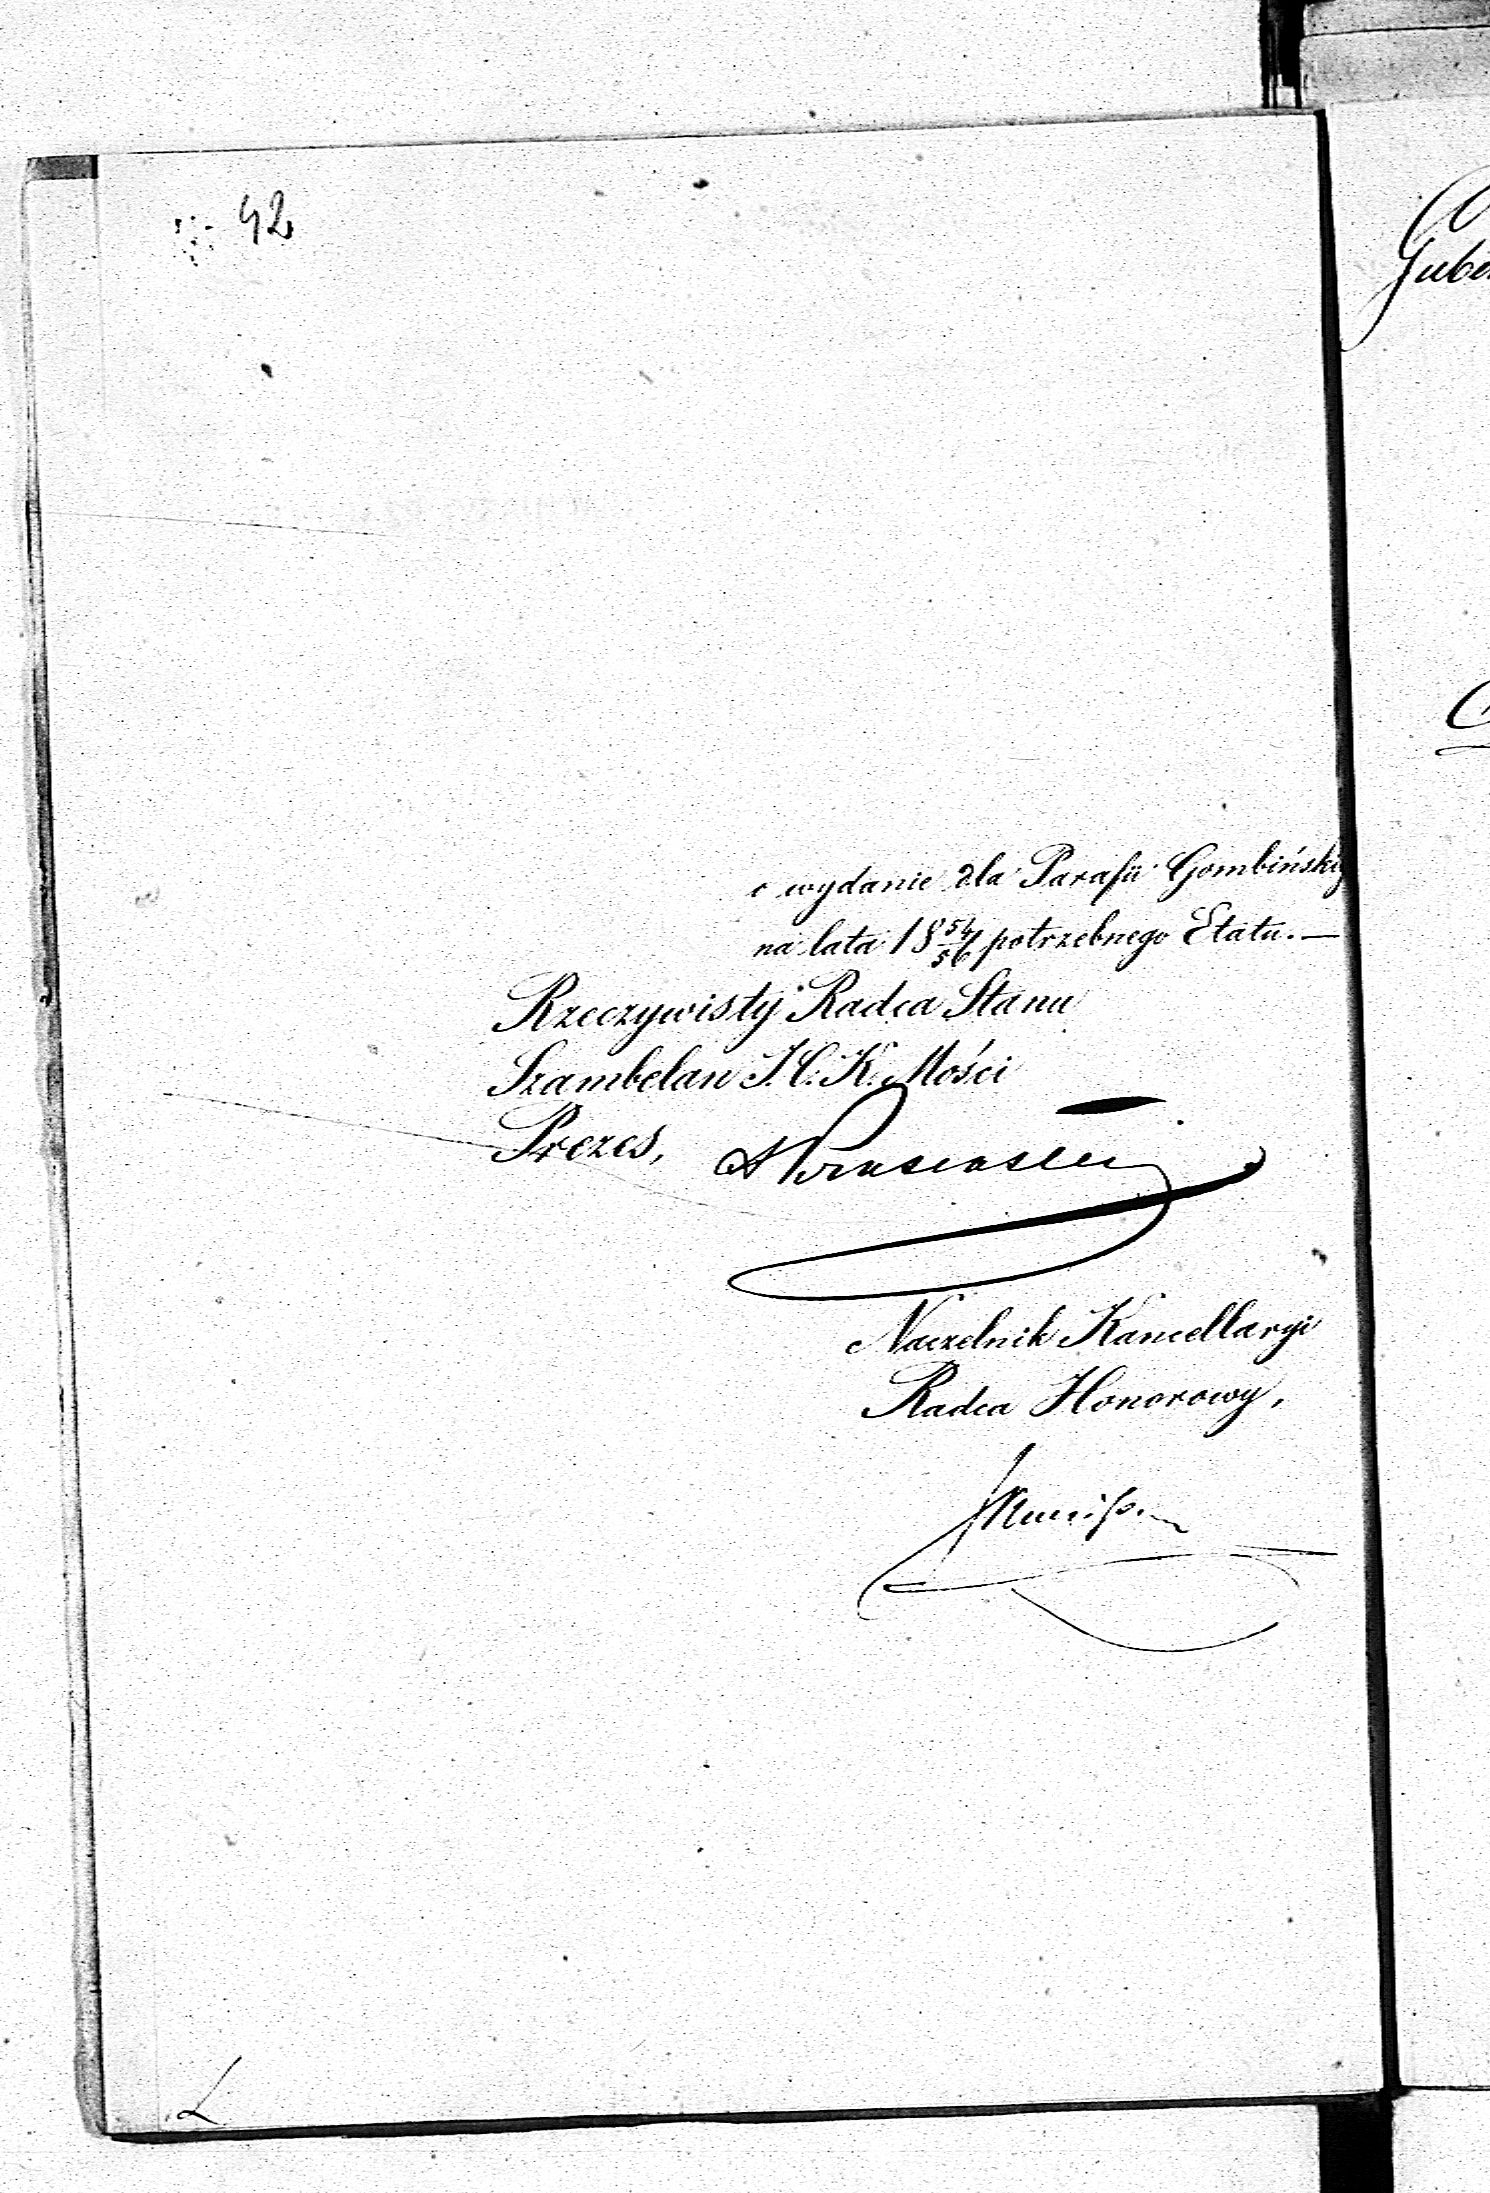 42
o wydanie dla Parafii Gombińskiej
na lata 18 54/56 potrzebnego Etatu. —
Rzeczywisty Radca Stanu
Szambelan J. C. K. Mości
Prezes,
Naczelnik Kancellaryi
Radca Honorowy,